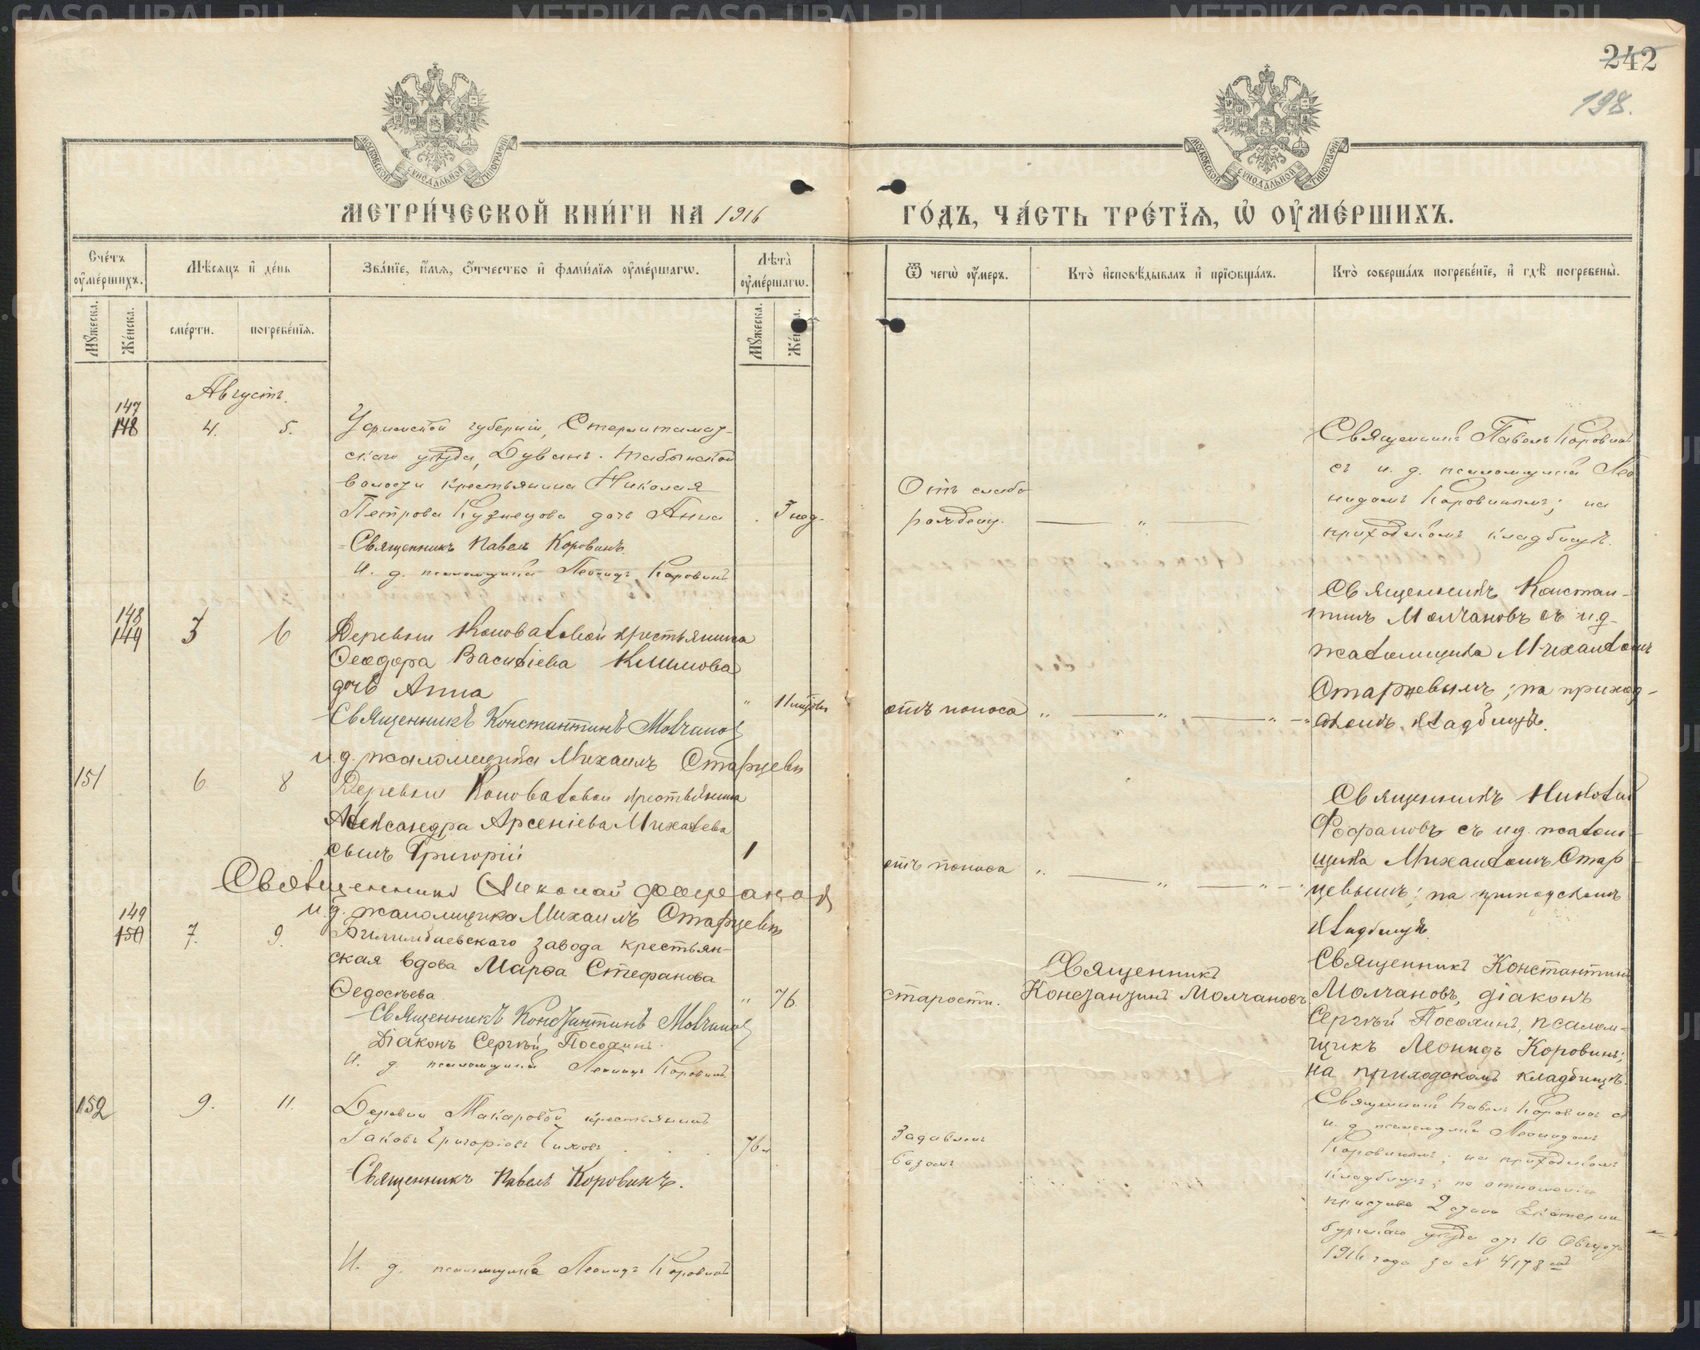 242
198.
МОСКОВСКОЙ СѴНОДАЛЬНОЙ ТИПОГРАФІИ
МОСКОВСКОЙ СѴНОДАЛЬНОЙ ТИПОГРАФІИ
МЕТРИ́ЧЕСКОЙ КНИ́ГИ НА 1916
ГО́ДЪ, ЧА́СТЬ ТРЕ́ТЇѦ, Ѽ ОУ҆МЕ́РШИХЪ.
Счетъ оумершихъ.
Мѣсяцъ и день
Званіе, имя, отчество и фамилія оумершагѡ.
Лѣта оумершагѡ.
Ѿ чегѡ оумеръ.
Кто исповѣдывалъ и пріобщалъ.
Кто совершалъ погребеніе, и гдѣ погребены.
Мужеска.
Женска.
смерти.
погребенія.
Мужеска.
Женска.
Августъ.
147
148
4.
5.
Уфимской губерніи, Стерлитамак-
скаго уѣзда, Буванъ-Табынской
волости крестьянина Николая
Петрова Кузнецова дочь Анна
7 нед.
Священникъ Павелъ Коровинъ
И. д. псаломщика Леонидъ Коровинъ
Отъ слабо
рожденія.
Священникъ Павелъ Коровинъ
съ и. д. псаломщика Лео
нидомъ Коровинымъ; на
приходскомъ кладбищѣ.
148
149
5
6
Деревни Коноваловой крестьянина
Ѳеодора Васильева Климова
дочь Анна
Священникъ Константинъ Молчановъ
и.д. псаломщика Михаилъ Старцевъ
отъ поноса
Священникъ Констан-
тинъ Молчановъ съ и.д.
псаломщика Михаиломъ
Старцевымъ; на приход-
скомъ кладбищѣ.
151
6
8
Деревни Коноваловой крестьянина
Александра Арсеніева Михалева
сынъ Григорій
1
Священникъ Николай Фофановъ
и.д. псаломщика Михаилъ Старцевъ
отъ поноса
Священникъ Николай
Фофановъ съ и.д. псалом-
щика Михаиломъ Стар-
цевымъ; на приходскомъ
кладбищѣ
149
150
7.
9.
Билимбаевскаго завода крестьян-
ская вдова Марѳа Стефанова
Ѳедосѣева
76
Священникъ Константинъ Молчановъ
Діаконъ Сергѣй Посохинъ.
И. д. псаломщика Леонидъ Коровинъ
старости.
Священникъ
Константинъ Молчановъ
Священникъ Константинъ
Молчановъ, діаконъ
Сергѣй Посохинъ, псалом-
щикъ Леонидъ Коровинъ;
на приходскомъ кладбищѣ.
152
9.
11.
Деревни Макаровой крестьянинъ
Іаковъ Григоріевъ
76
Священникъ Павелъ Коровинъ.
И. д. псаломщика Леонидъ Коровинъ
Задавленъ
Священникъ Павелъ Коровинъ съ
и. д. псаломщика Леонидомъ
Коровинымъ; на приходскомъ
кладбищѣ; по отношенію
пристава 2 стана Екатерин
бургскаго уѣзда отъ 10 Августа
1916 года за № 4178